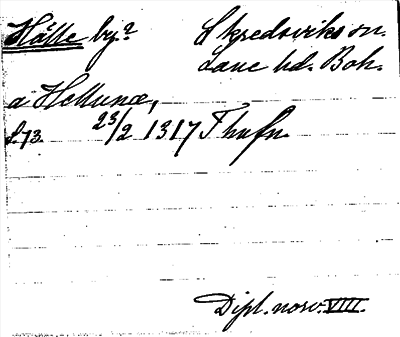 Hälle by? Skredsviks sn.
Lane hd. Boh.
a Hellunæ,
s. 73. 23/2 1317 Thafn
Dipl. norv. VIII.